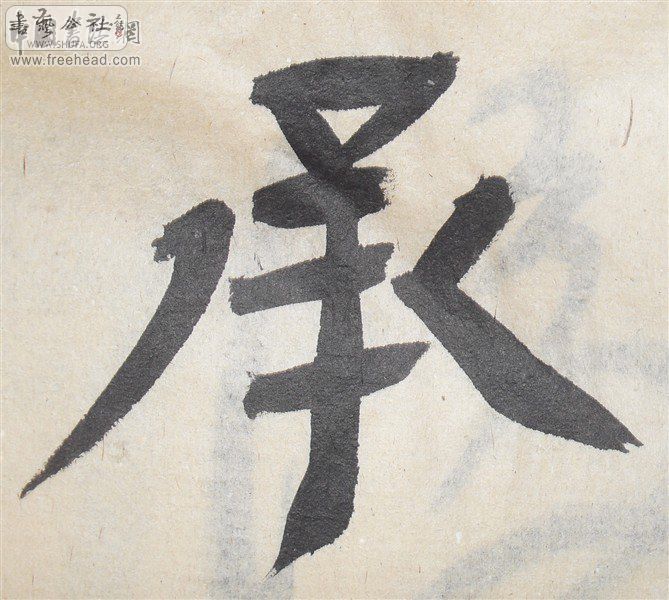 书艺公社
WWW.SHUFA.ORG
www.freehead.com
承